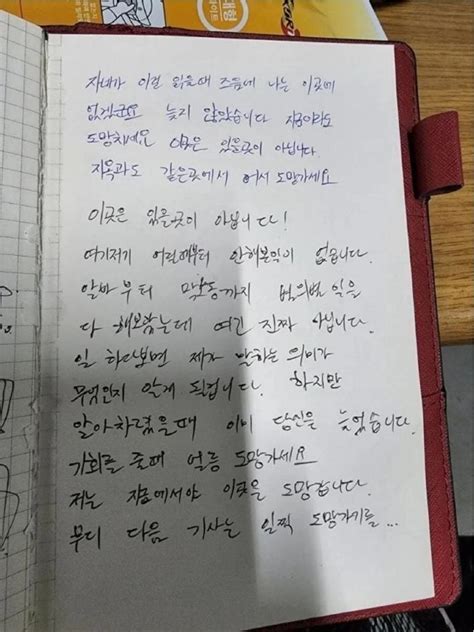 자네가 이걸 읽을때 즈음에 나는 이곳에
없겠군요 늦지 않았습니다 지금이라도
도망치세요 이곳은 있을곳이 아닙니다.
지옥과도 같은곳에서 어서 도망가세요
이곳은 있을곳이 아닙니다!
여기저기 어릴때부터 안해본일이 없습니다.
알바부터 막노동까지 별의별 일을
다 해보았는데 여긴 진짜 아닙니다.
일 하다보면 제가 말하는 의미가
무엇인지 알게 될겁니다. 하지만
알아차렸을때 이미 당신은 늦었습니다.
기회를 줄때 얼릉 도망가세요
저는 지금에서야 이곳을 도망갑니다.
부디 다음 기사는 일찍 도망가기를...